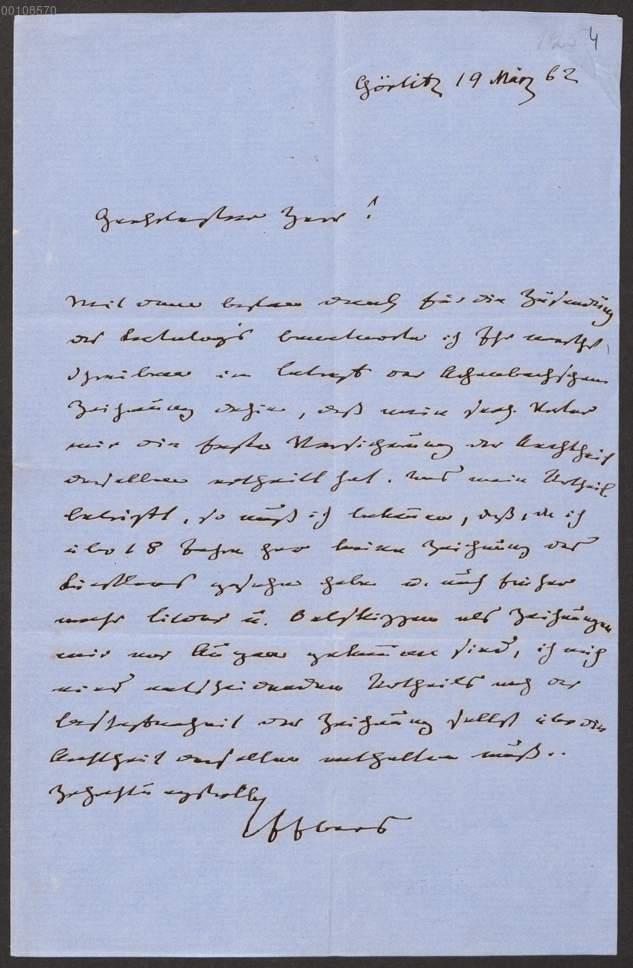 00108570
4
Görlitz 19 März 62
Hochgeehrter Herr!
Mit dem besten Dank für die Zusendung
des Catalogs beantworte ich Ihr werthes
Schreiben in betreff der Achenbachschen
Zeichnung dahin, daß mein sel. Vater
mir die feste Versicherung der Aechtheit
derselben ertheilt hat. Was mein Urtheil
betrifft, so muß ich bekennen, daß, da ich
über 18 Jahre her keine Zeichnung des
Künstlers gesehen habe u. auch früher
mehr Bilder u. Oelskizzen als Zeichnungen
mir vor Augen gekommen sind, ich mich
eines entscheidenden Urtheils nach der
Beschaffenheit der Zeichnung selbst über die
Aechtheit derselben enthalten muß..
Hochachtungsvoll